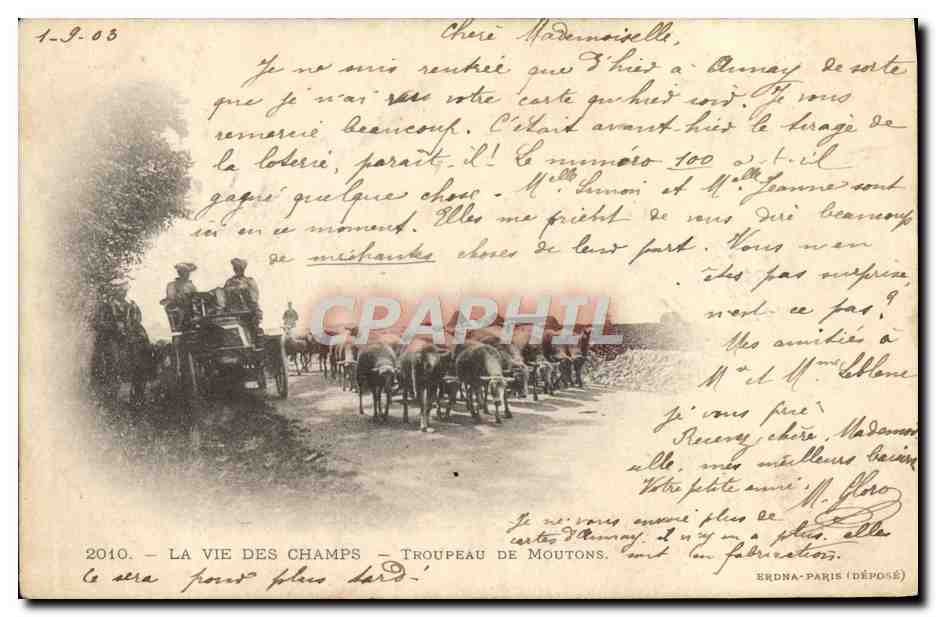 1-9-03
Chère Mademoiselle,
Je ne suis rentrée que d'hier à Aunay de sorte
que je n'ai reçu votre carte qu'hier soir. Je vous
remercie beaucoup. C'était avant-hier le tirage de
la loterie, paraît-il! Le numéro 100 a-t-il
gagné quelque chose. Melle Simon et Melle Jeanne sont
ici en ce moment. Elles me prient de vous dire beaucoup
de méchantes choses de leur part. Vous n'en
êtes pas surprise,
n'est-ce pas?
Mes amitiés à
Mr et Mme Leblanc
je vous prie
Recevez, chère, Mademoi
selle, mes meilleurs baisers
Votre petite amie.
M. Gloro
Je ne vous envoie plus de
cartes d'Aunay. il n'y en a plus. elles
sont en fabrication.
CPAPHIL
2010. - LA VIE DES CHAMPS - TROUPEAU DE MOUTONS.
ce sera pour plus tard!
ERDNA-PARIS (DÉPOSÉ)